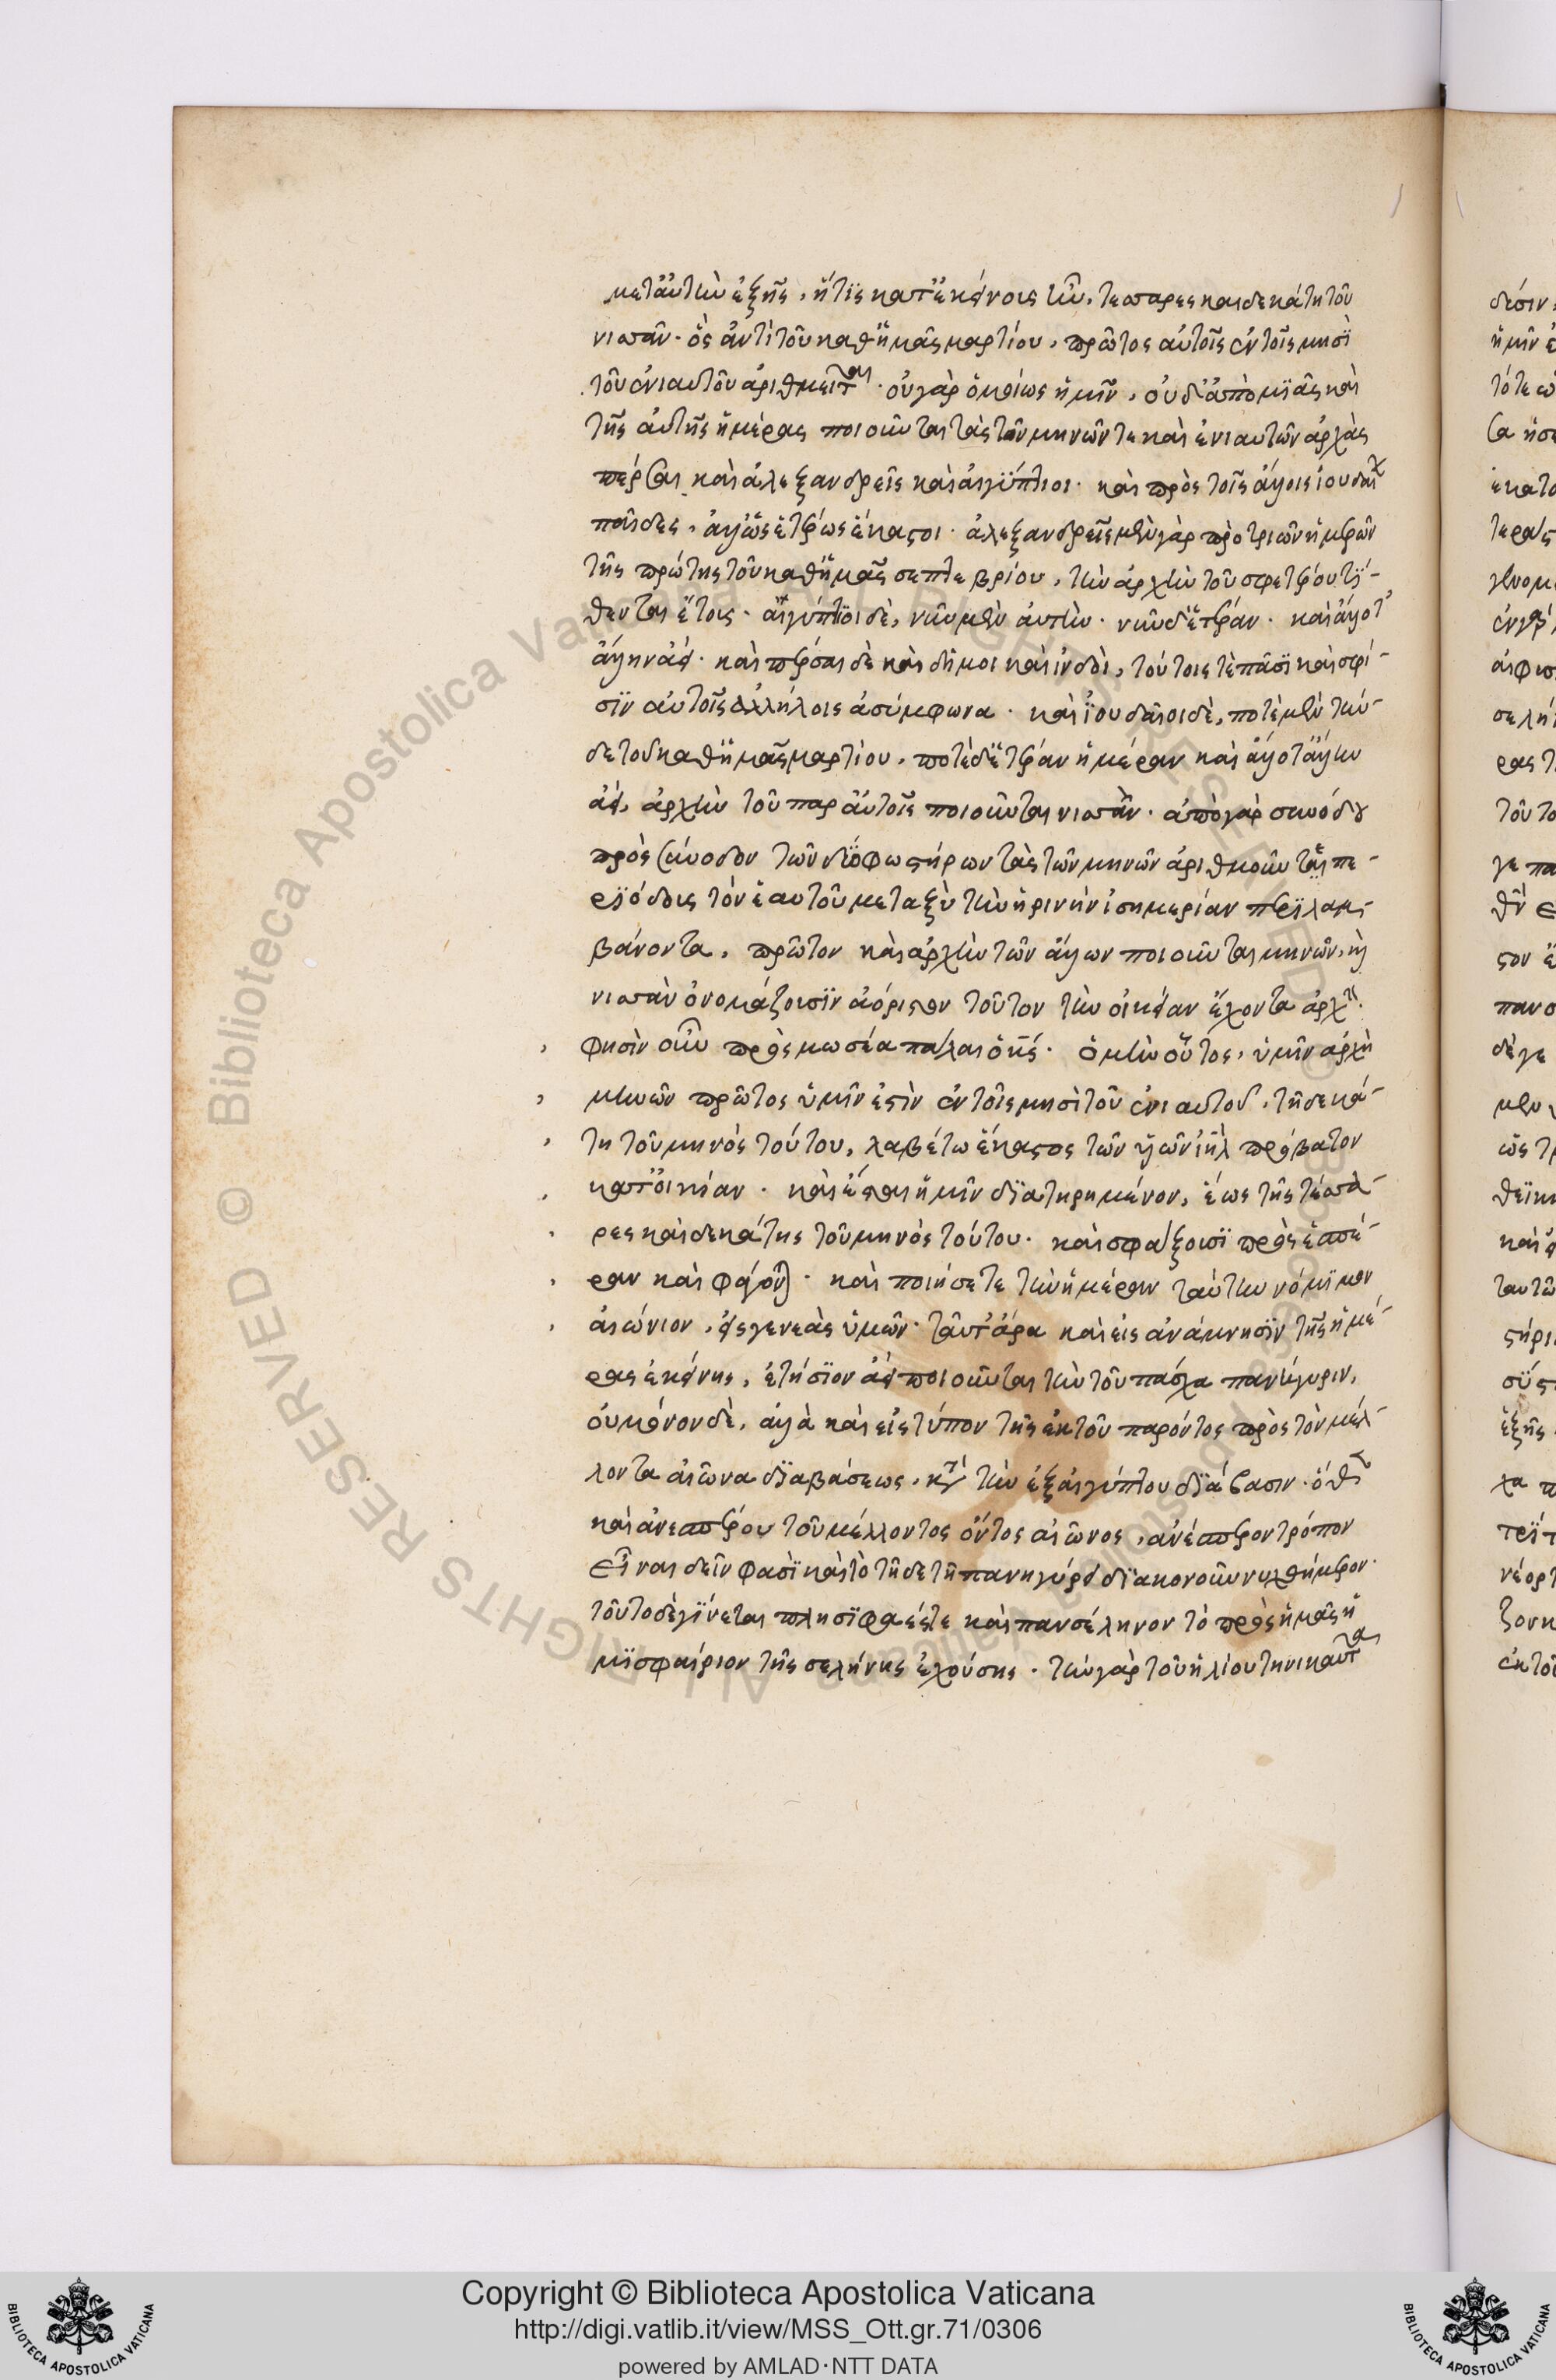 μετ' αὐτὴν ἑξῆς, ἥτις κατ' ἐκείνοις ἦν, τεσσαρεσκαιδεκάτη τοῦ
νισσᾶν· ὃς ἀντὶ τοῦ καθ' ἡμᾶς μαρτίου, πρῶτος αὐτοῖς ἐν τοῖς μησὶ
τοῦ ἐνιαυτοῦ ἀριθμεῖται· οὐ γὰρ ὁμοίως ἡμῖν, οὐδ' ἀπὸ μιᾶς καὶ
τῆς αὐτῆς ἡμέρας ποιοῦνται τὰς τῶν μηνῶν τε καὶ ἐνιαυτῶν ἀρχὰς
πέρσαι καὶ ἀλεξανδρεῖς καὶ αἰγύπτιοι· καὶ πρὸς τοῖς ἄλλοις ἰουδαί
παῖδες, ἀλλ' ὡς ἑτέρως ἕκαστοι· ἀλεξανδρεῖς μὲν γὰρ πρὸ τριῶν ἡμερῶν
τῆς πρώτης τοῦ καθ' ἡμᾶς σεπτεβρίου, τὴν ἀρχὴν τοῦ σφετέρου τί-
θενται ἔτους· αἰγύπτιοι δὲ, νῦν μὲν αὐτὴν· νῦν δ' ἑτέραν· καὶ ἄλλοτ'
ἄλλην ἀεί· καὶ πέρσαι δὲ καὶ δῆμοι καὶ ἰνδοὶ, τούτοις τὲ πᾶσι καὶ σφί-
σιν αὐτοῖς ἀλλήλοις ἀσύμφωνα· καὶ ἰουδαῖοι δὲ, ποτὲ μὲν τήν-
δε τοῦ καθ' ἡμᾶς μαρτίου, ποτὲ δ' ἑτέραν ἡμέραν καὶ ἄλλοτ' ἄλλην
ἀεί, ἀρχὴν τοῦ παρ' αὐτοῖς ποιοῦνται νισσᾶν· ἀπὸ γὰρ συνόδου
πρὸς σύνοδον τῶν δύο φωστήρων τὰς τῶν μηνῶν ἀριθμοῦνται πε-
ριόδους τὸν ἑαυτοῦ μεταξὺ τὴν ἠρινὴν ἰσημερίαν περιλαμ-
βάνοντα, πρῶτον καὶ ἀρχὴν τῶν ἄλλων ποιοῦνται μηνῶν, καὶ
νισσὰν ὀνομάζουσιν ἀόριστον τοῦτον τὴν οἰκείαν ἔχοντα ἀρχήν.
φησὶν οὖν πρὸς μωσέα πάλαι ὁ κς· ὁ μὴν οὗτος, ὑμῖν ἀρχὴ
μηνῶν πρῶτος ὑμῖν ἐστὶν ἐν τοῖς μησὶ τοῦ ἐνιαυτοῦ. τῇ δεκά-
τη τοῦ μηνὸς τούτου, λαβέτω ἕκαστος τῶν υἱῶν ιηλ πρόβατον
κατ' οἰκίαν· καὶ ἔσται ἡμῖν διατηρημένον, ἕως τῆς τεσσα-
ρες καὶ δεκάτης τοῦ μηνὸς τούτου· καὶ σφάξουσι πρὸς ἑσπέ-
ραν καὶ φάγονται· καὶ ποιήσετε τὴν ἡμέραν ταύτην νόμιμον
αἰώνιον, εἰς γενεὰς ὑμῶν· ταῦτ' ἄρα καὶ εἰς ἀνάμνησιν τῆς ἡμέ-
ρας ἐκείνης, ἐτήσιον ἀεὶ ποιοῦνται τὴν τοῦ πάσχα πανήγυριν,
οὐ μόνον δὲ, ἀλλὰ καὶ εἰς τύπον τῆς ἐκ τοῦ παρόντος πρὸς τὸν μέλ-
λοντα αἰῶνα διαβάσεως, κατὰ τὴν ἐξ αἰγύπτου διάβασιν· ὅθεν
καὶ ἀνεσπέρου τοῦ μέλλοντος ὄντος αἰῶνος, ἀνέσπερον τρόπον
εἶναι δεῖν φασὶ καὶ τὸ τῇδε τῇ πανηγύρει διακονοῦν νυχθήμερον·
τοῦτο δὲ γίνεται πλησιφαές τε καὶ πανσέληνον τὸ πρὸς ἡμᾶς ἡ
μισφαίριον τῆς σελήνης ἐχούσης· τὴν γὰρ τοῦ ἡλίου τηνικαῦτα